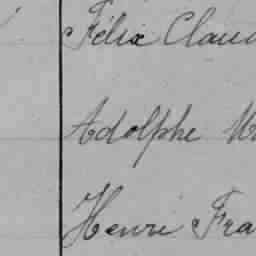 Félix Claud
Adolphe
Henri Fra